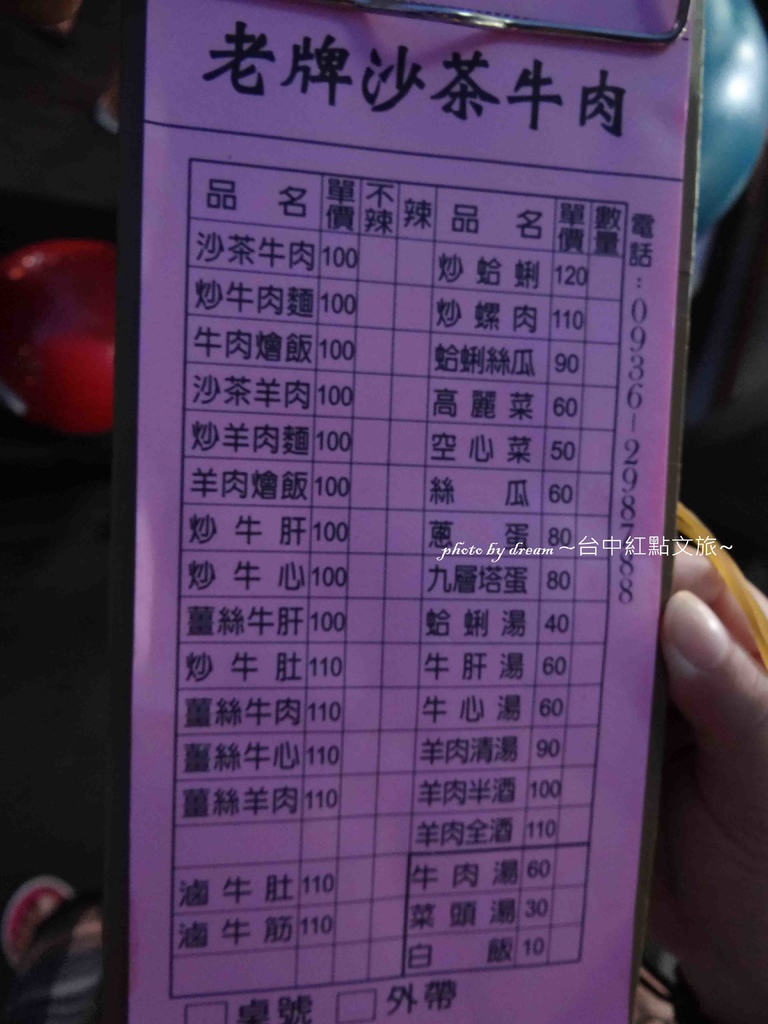 老牌沙茶牛肉
品名 單價 不辣 辣 品名 單價 數量
沙茶牛肉 100 炒蛤蜊 120
炒牛肉麵 100 炒螺肉 110
牛肉燴飯 100 蛤蜊絲瓜 90
沙茶羊肉 100 高麗菜 60
炒羊肉麵 100 空心菜 50
羊肉燴飯 100 絲瓜 60
炒牛肝 100 蔥蛋 80
炒牛心 100 九層塔蛋 80
薑絲牛肝 100 蛤蜊湯 40
炒牛肚 110 牛肝湯 60
薑絲牛肉 110 牛心湯 60
薑絲牛心 110 羊肉清湯 90
薑絲羊肉 110 羊肉半酒 100
羊肉全酒 110
滷牛肚 110 牛肉湯 60
滷牛筋 110 菜頭湯 30
白飯 10
桌號 外帶
電話:0936-298788
photo by dream ~台中紅點文旅~